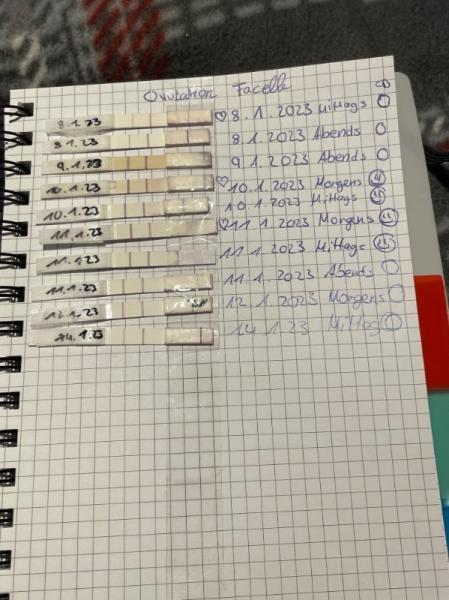 Ovulation Facelle
8.1.23 ♡ 8.1.2023 Mittags
8.1.23 8.1.2023 Abends
9.1.23 9.1.2023 Abends
10.1.23 ♡ 10.1.2023 Morgens
10.1.23 10.1.2023 Mittags
11.1.23 ♡ 11.1.2023 Morgens
11.1.23 11.1.2023 Mittags
11.1.23 11.1.2023 Abends
12.1.23 12.1.2023 Morgens
14.1.23 14.1.23 Mittag